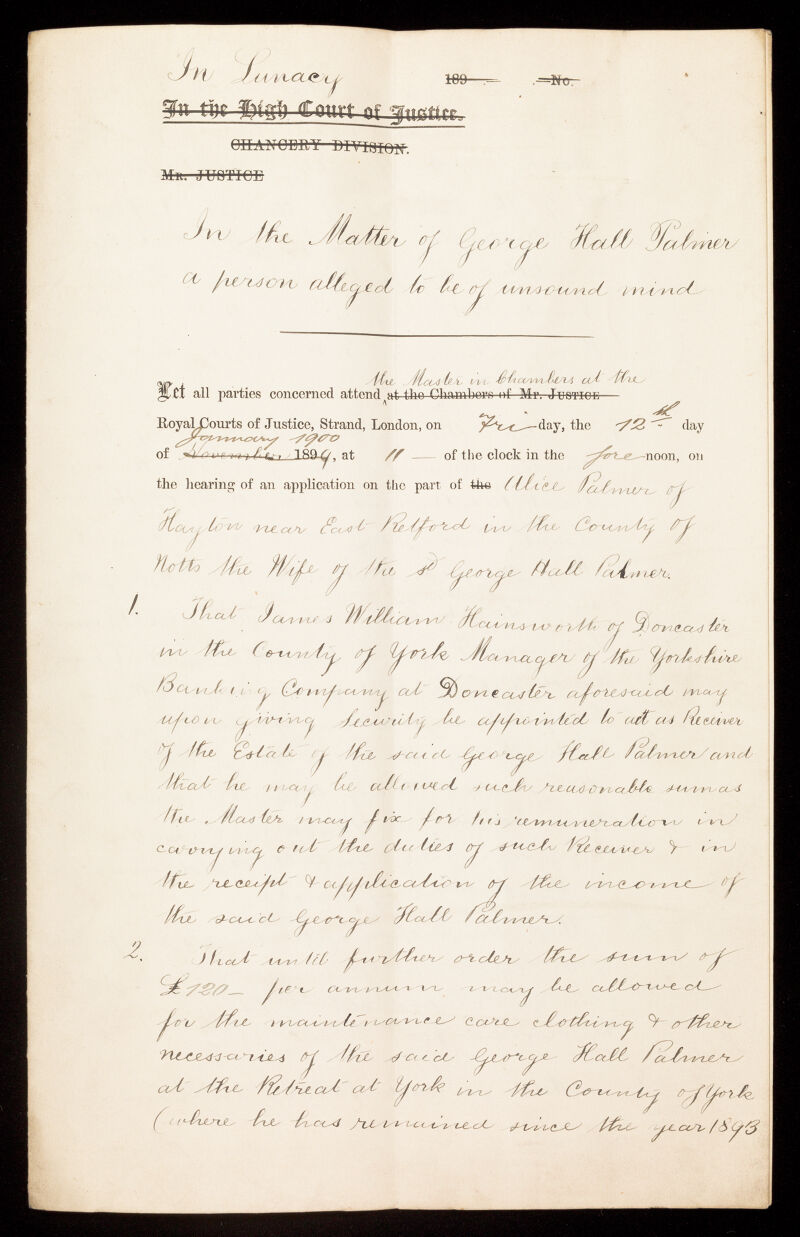 In Lunacy 189 — No.
In the High Court of Justice.
CHANCERY DIVISION.
MR. JUSTICE
In the Matter of George Hall Palmer
a person alleged to be of unsound mind
the Master in Chambers at the
Let all parties concerned attend at the Chambers of Mr. JUSTICE
Royal Courts of Justice, Strand, London, on Fri-day, the 12th day
January 1900
of November 1899, at 11 — of the clock in the fore-noon, on
the hearing of an application on the part of the Alice Palmer of
Hayton near East Retford in the County of
Notts the Wife of the sd George Hall Palmer.
1. That James William Hainsworth of Doncaster
in the County of York Manager of the Yorkshire
Banking Company at Doncaster aforesaid may
upon giving Security be appointed to act as Receiver
of the Estate of the said George Hall Palmer and
that he may be allowed such reasonable sum as
the Master may fix for his remuneration in
carrying out the duties of such Receiver & in
the receipt & application of the income of
the said George Hall Palmer.
2. That until further order the sum of
£120 – per annum may be allowed
for the maintenance care clothing & other
necessaries of the said George Hall Palmer
at the Retreat at York in the County of York
(where he has remained since the year 1893